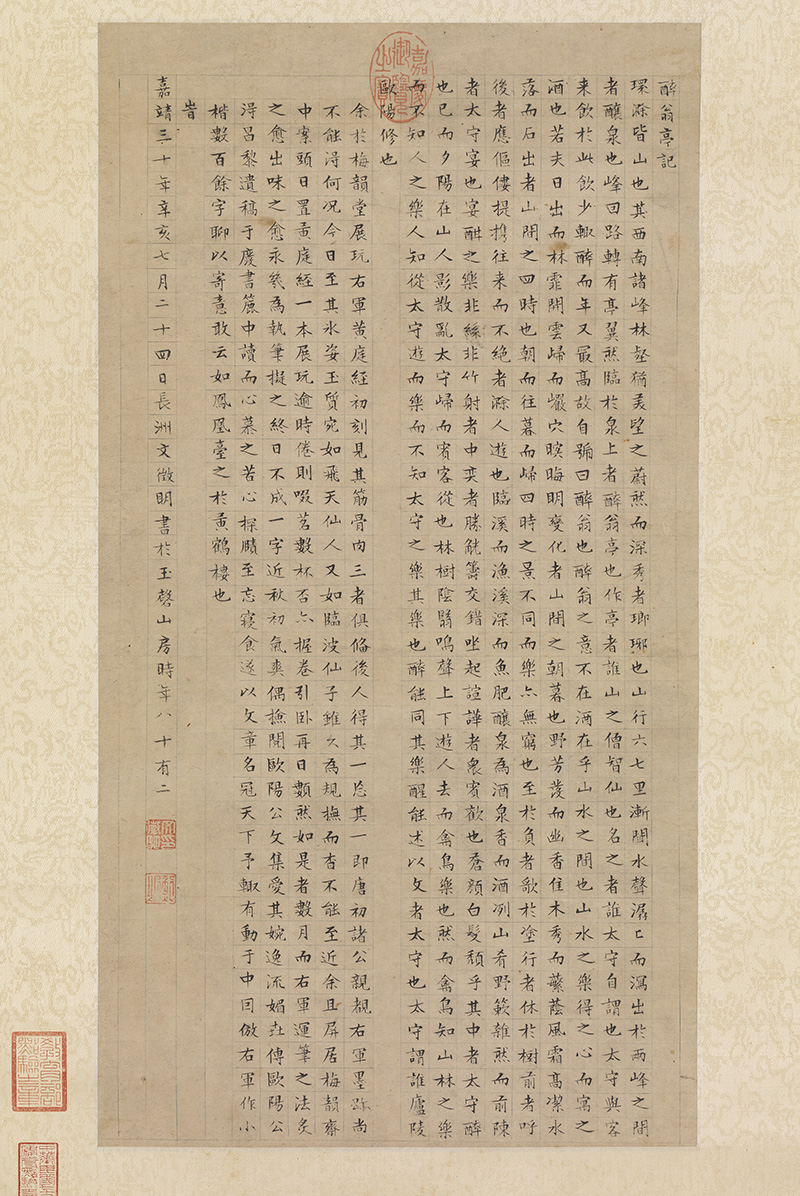 醉翁亭記
環滁皆山也其西南諸峰林壑猶美望之蔚然而深秀者瑯琊也山行六七里漸聞水聲潺〻而瀉出於兩峰之間
者釀泉也峰回路轉有亭翼然臨於泉上者醉翁亭也作亭者誰山之僧智仙也名之者誰太守自謂也太守與客
来飲於此飲少輒醉而年又最高故自號曰醉翁也醉翁之意不在酒在乎山水之間也山水之樂得之心而寓之
酒也若夫日出而林霏開雲歸而巖穴暝晦明變化者山間之朝暮也野芳發而幽香佳木秀而蘩蔭風霜高潔水
落而石出者山間之四時也朝而往暮而歸四時之景不同而樂亦無窮也至於負者歌於塗行者休於樹前者呼
後者應傴僂提携往来而不絶者滁人遊也臨溪而漁溪深而魚肥釀泉為酒泉香而酒冽山肴野蔌雜然而前陳
者太守宴也宴酣之樂非絲非竹射者中奕者勝觥籌交錯坐起諠譁者衆賓歡也蒼顏白髮頹乎其中者太守醉
也已而夕陽在山人影散亂太守歸而賓客從也林樹陰翳鳴聲上下遊人去而禽鳥樂也然而禽鳥知山林之樂
而不知人之樂人知從太守遊而樂而不知太守之樂其樂也醉能同其樂醒能述以文者太守也太守謂誰廬陵
歐陽修也
余於梅韻堂展玩右軍黄庭經初刻見其筋骨肉三者俱備後人得其一忘其一即唐初諸公親覩右軍墨跡尚
不能得何況今日至其水姿玉質宛如飛天仙人又如臨波仙子雖久為規橅而杳不能至近余且屏居梅韻齋
中案頭日置黄庭經一本展玩逾時倦則啜茗數杯否亦握卷引卧再日數然如是者數月而右軍運筆之法炙
之愈出味之愈永幾為執筆擬之終日不成一字近秋初氣爽偶撿閱歐陽公文集愛其婉逸流媚世傳歐陽公
得昌黎遺稿于廢書簏中讀而心慕之苦心探賾至忘寢食遂以文章名冠天下予輒有動于中因倣右軍作小
楷數百餘字聊以寄意敢云如鳳凰臺之於黄鶴樓也
旹
嘉靖三十年辛亥七月二十四日長洲文徵明書於玉磬山房時年八十有二